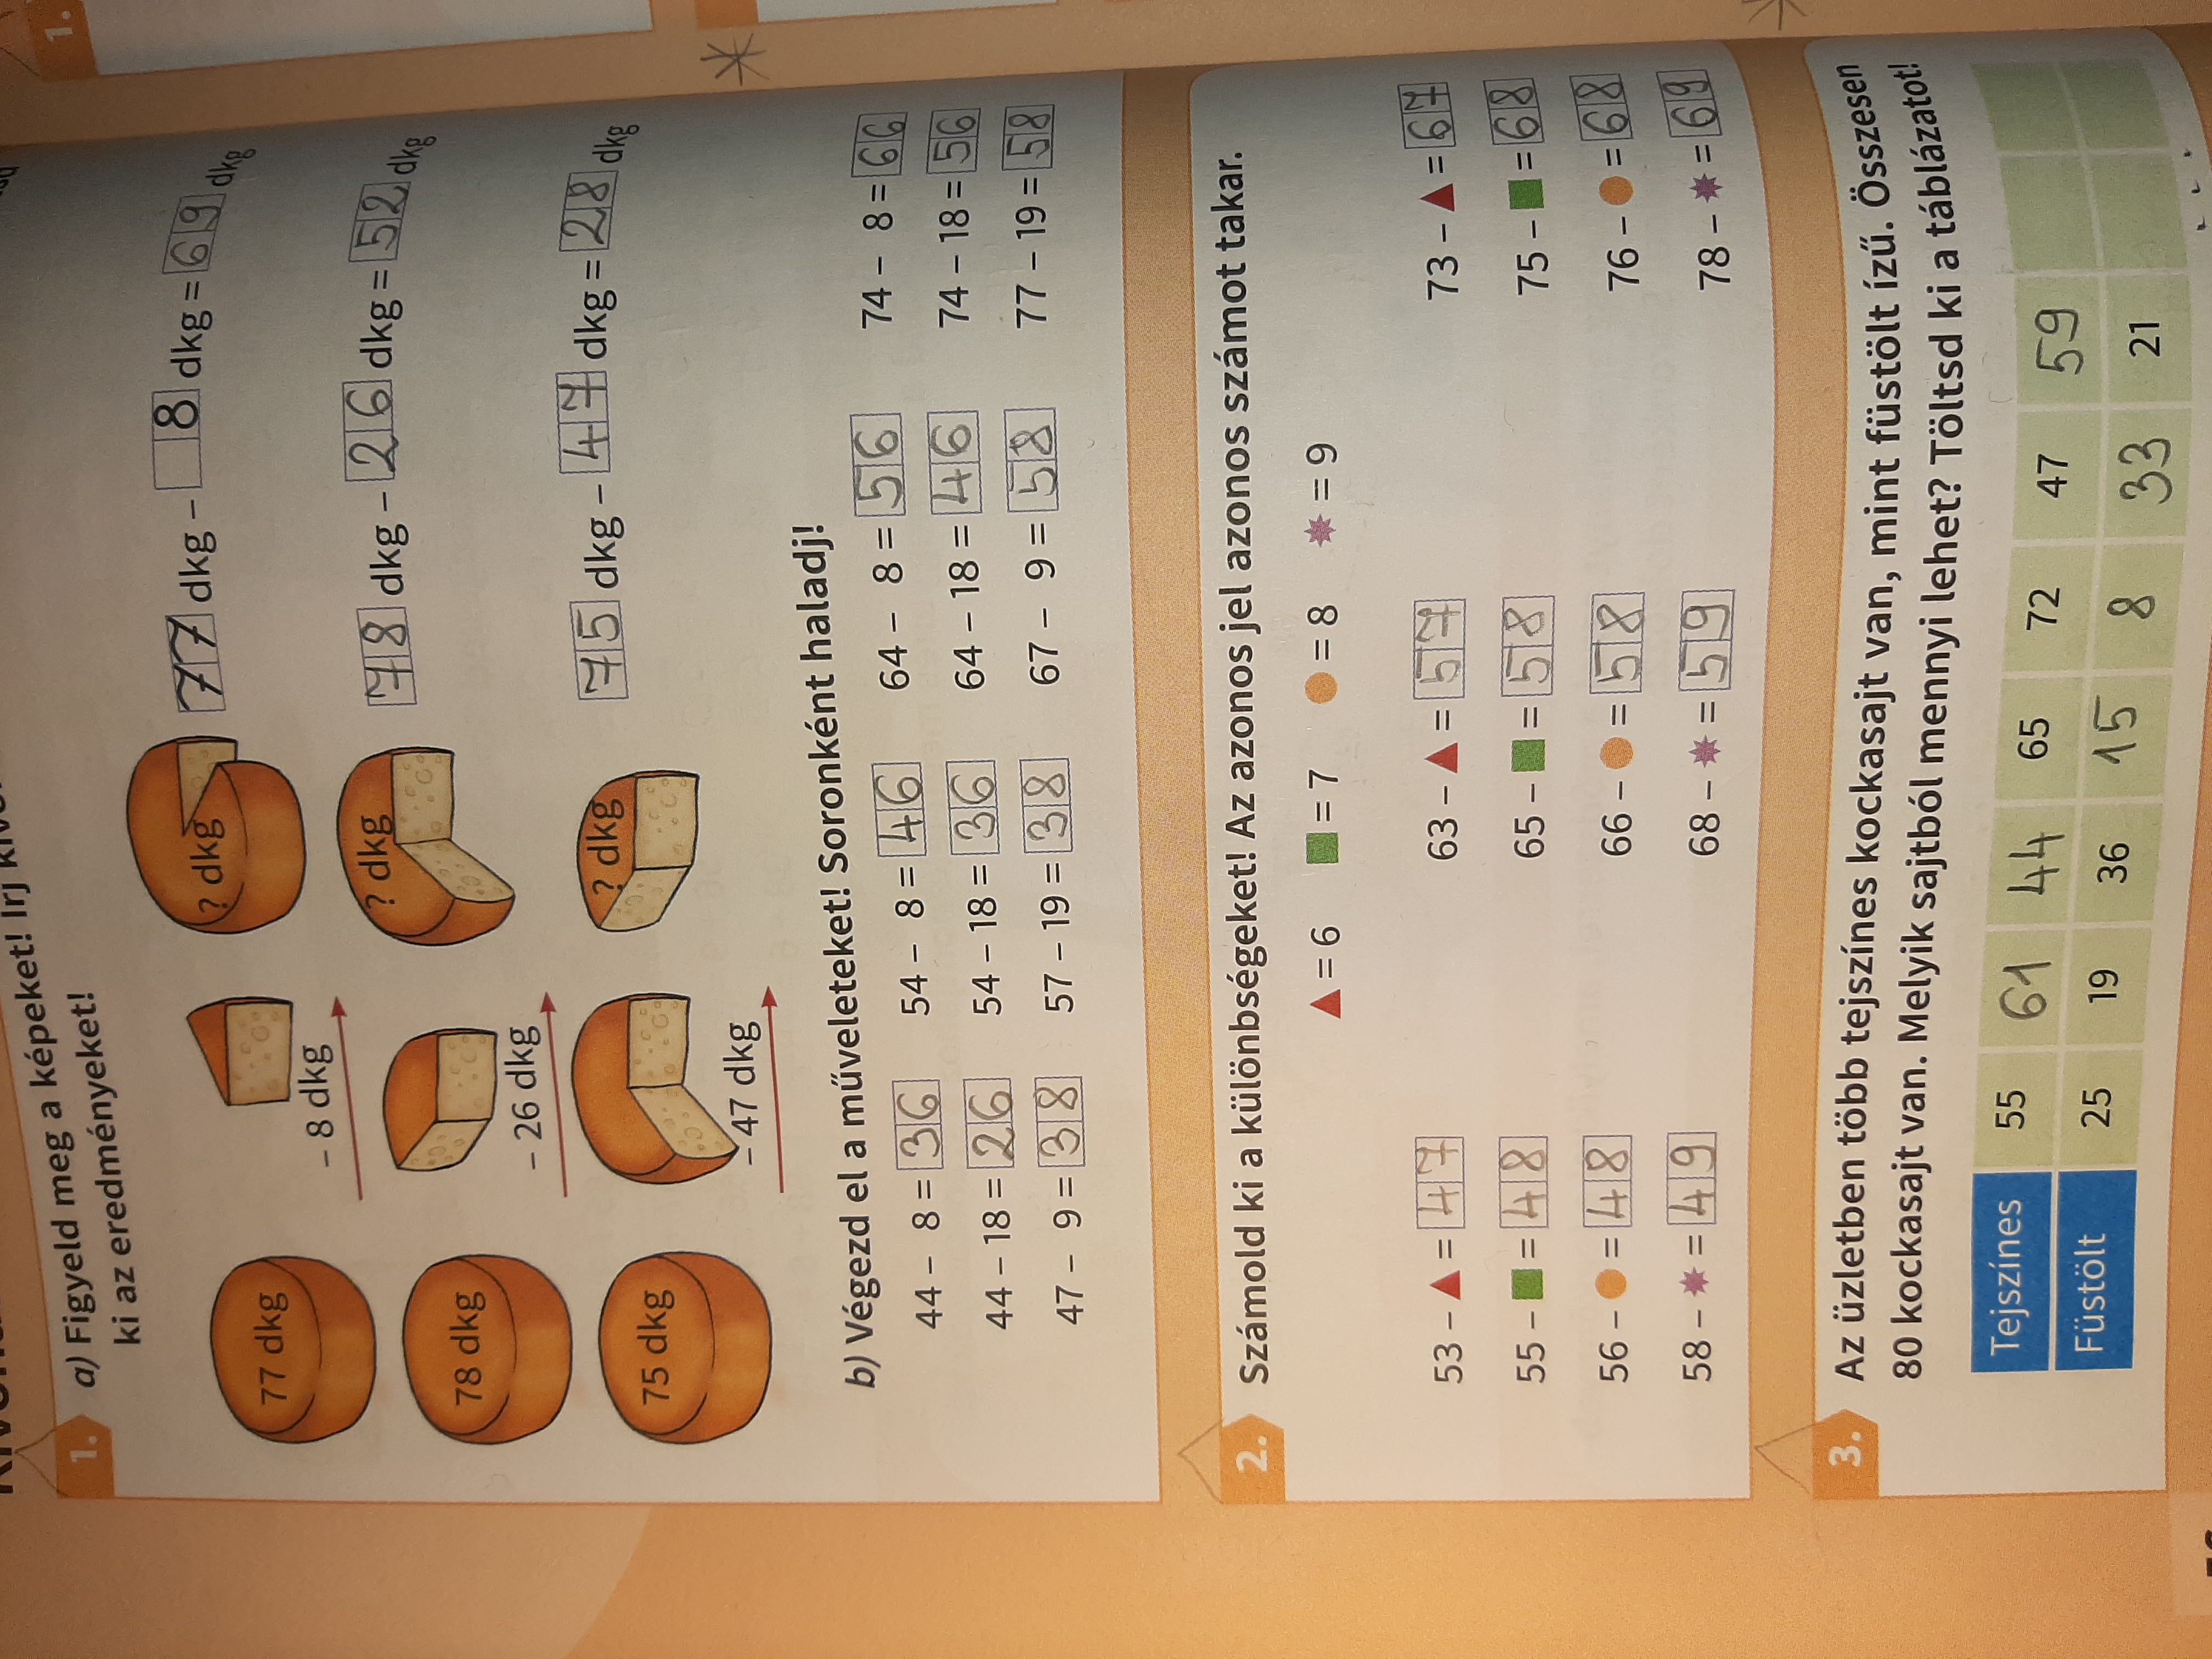 1. a) Figyeld meg a képeket! Írj
ki az eredményeket!
77 dkg
– 8 dkg
? dkg
77 dkg – 8 dkg = 69 dkg
78 dkg
– 26 dkg
? dkg
78 dkg – 26 dkg = 52 dkg
75 dkg
– 47 dkg
? dkg
75 dkg – 47 dkg = 28 dkg
b) Végezd el a műveleteket! Soronként haladj!
44 – 8 = 36 54 – 8 = 46 64 – 8 = 56 74 – 8 = 66
44 – 18 = 26 54 – 18 = 36 64 – 18 = 46 74 – 18 = 56
47 – 9 = 38 57 – 19 = 38 67 – 9 = 58 77 – 19 = 58
2. Számold ki a különbségeket! Az azonos jel azonos számot takar.
▲ = 6 ■ = 7 ● = 8 ✸ = 9
53 – ▲ = 47 63 – ▲ = 57 73 – ▲ = 67
55 – ■ = 48 65 – ■ = 58 75 – ■ = 68
56 – ● = 48 66 – ● = 58 76 – ● = 68
58 – ✸ = 49 68 – ✸ = 59 78 – ✸ = 69
3. Az üzletben több tejszínes kockasajt van, mint füstölt ízű. Összesen
80 kockasajt van. Melyik sajtból mennyi lehet? Töltsd ki a táblázatot!
Tejszínes 55 61 44 65 72 47 59
Füstölt 25 19 36 15 8 33 21
1.